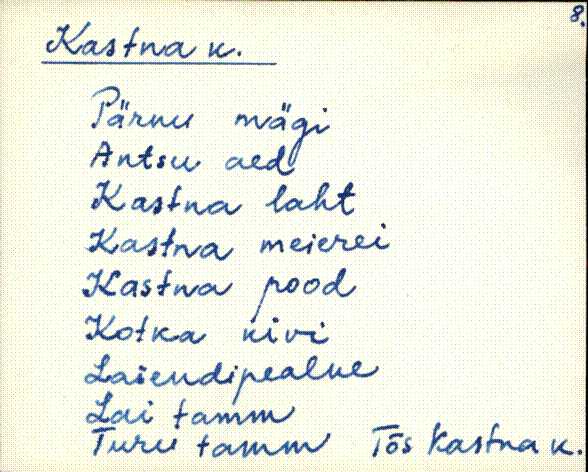 8.
Kastna k.
Pärnu mägi
Antsu aed
Kastna laht
Kastna meierei
Kastna pood
Kotka kivi
Laiendipealne
Lai tamm
Turu tamm Tõs Kastna k.